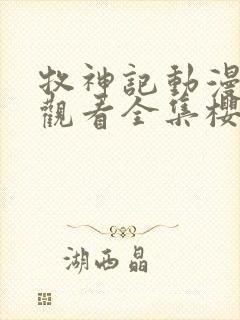 牧神記動漫
觀看全集櫻
湖西晶